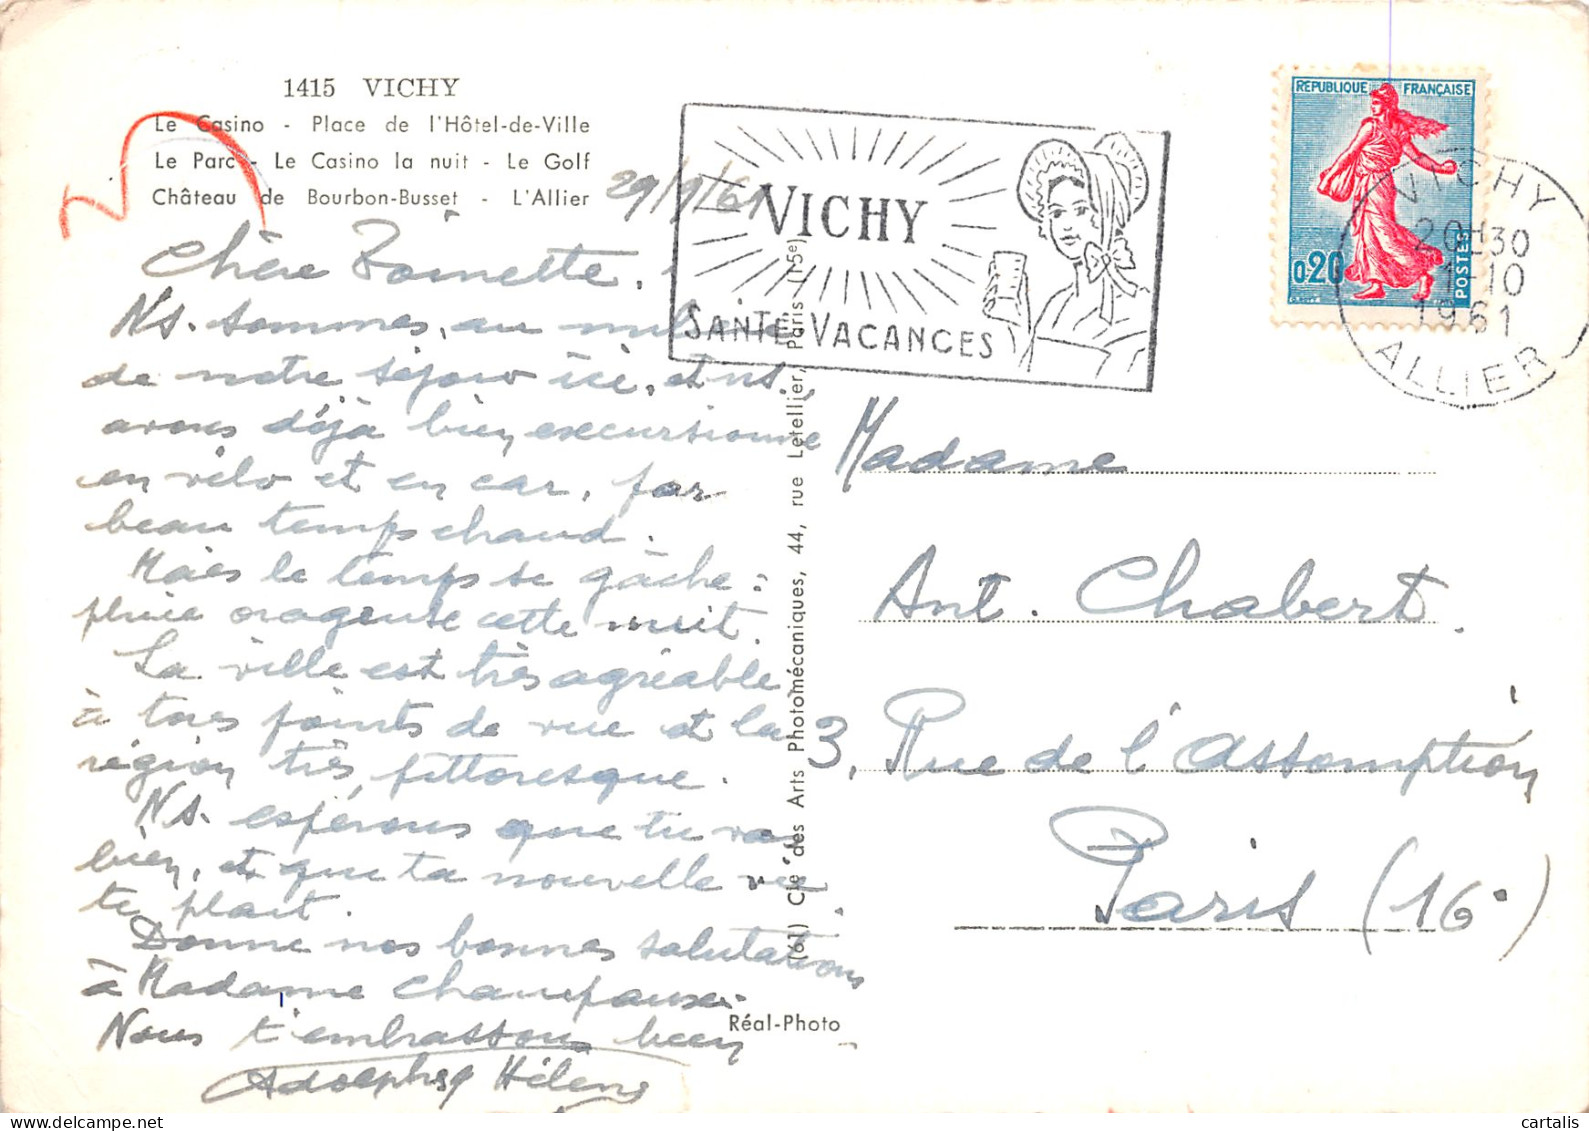 1415 VICHY
Le Casino - Place de l'Hôtel-de-Ville
Le Parc - Le Casino la nuit - Le Golf
Château de Bourbon-Busset - L'Allier
29/9/61
Chère Toinette,
Ns. sommes, au milieu
de notre séjour ici, et ns.
avons déjà bien excursionné
en vélo et en car, par
beau temps chaud.
Mais le temps se gâche :
pluie orageuse cette nuit.
La ville est très agréable
à tous points de vue et la
région très pittoresque.
Ns. espérons que tu vas
bien, et que ta nouvelle vie
te plait.
Donne nos bonnes salutations
à Madame
Nous t'embrassons bien
Adolphe Hélène
(67) Cie des Arts Photomécaniques, 44, rue Letellier, Paris (15e)
Réal-Photo
VICHY
SANTÉ VACANCES
REPUBLIQUE FRANÇAISE
0,20
POSTES
VICHY
20H30
1-10
1961
ALLIER
Madame
Ant. Chabert.
3, Rue de l'Assomption
Paris (16°)
cartalis
www.delcampe.net